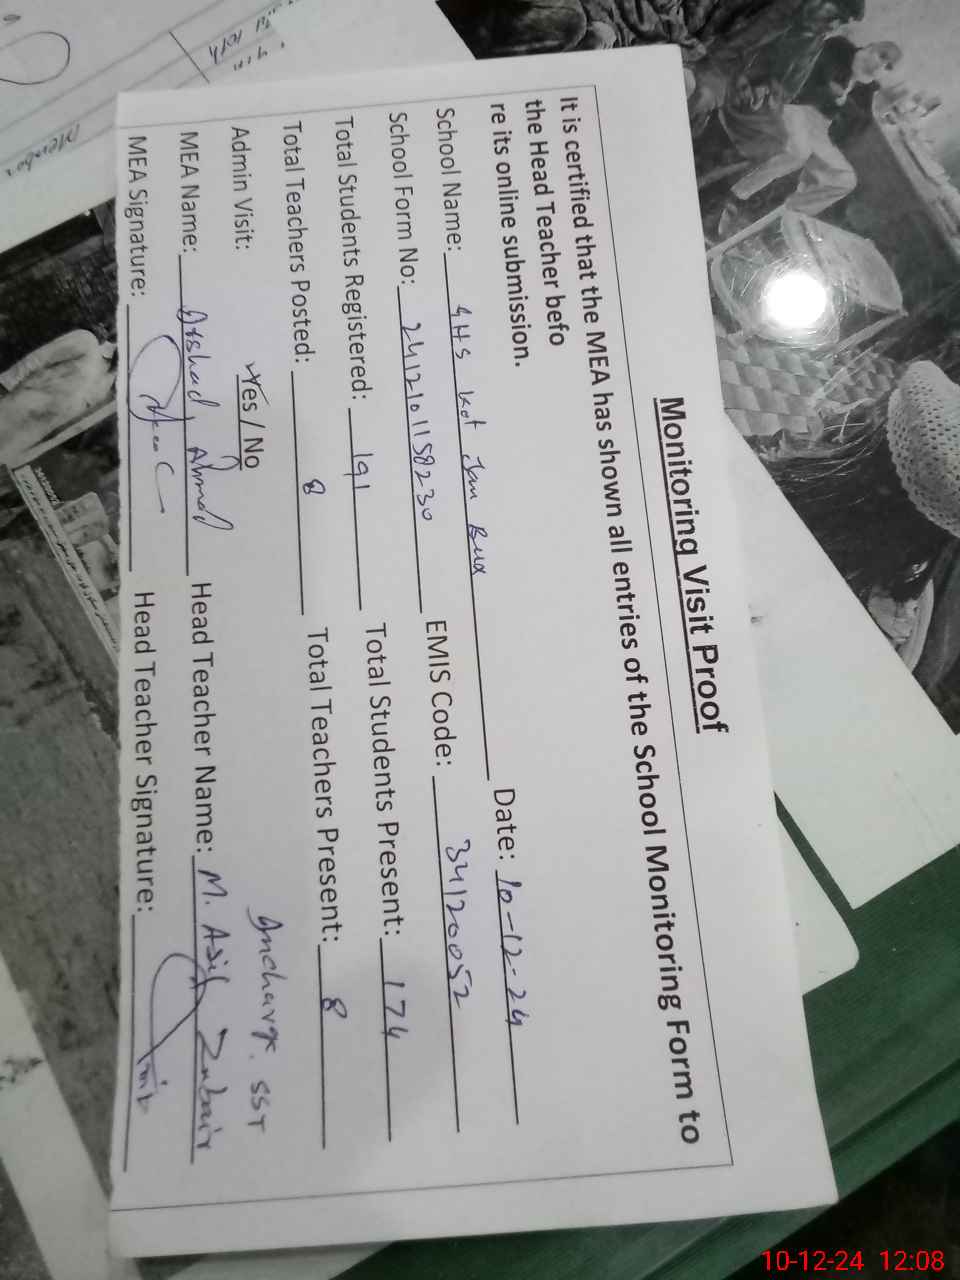 Monitoring Visit Proof
It is certified that the MEA has shown all entries of the School Monitoring Form to
the Head Teacher befo
re its online submission.
School Name: GHS Kot Jan Bux Date: 10-12-24
School Form No: 241210158230 EMIS Code: 34120052
Total Students Registered: 191 Total Students Present: 174
Total Teachers Posted: 8 Total Teachers Present: 8
Admin Visit: Yes / No Incharge. SST
MEA Name: Arshad Ahmad Head Teacher Name: M. Asif Zubair
MEA Signature: Head Teacher Signature:
Member
10th
10-12-24 12:08